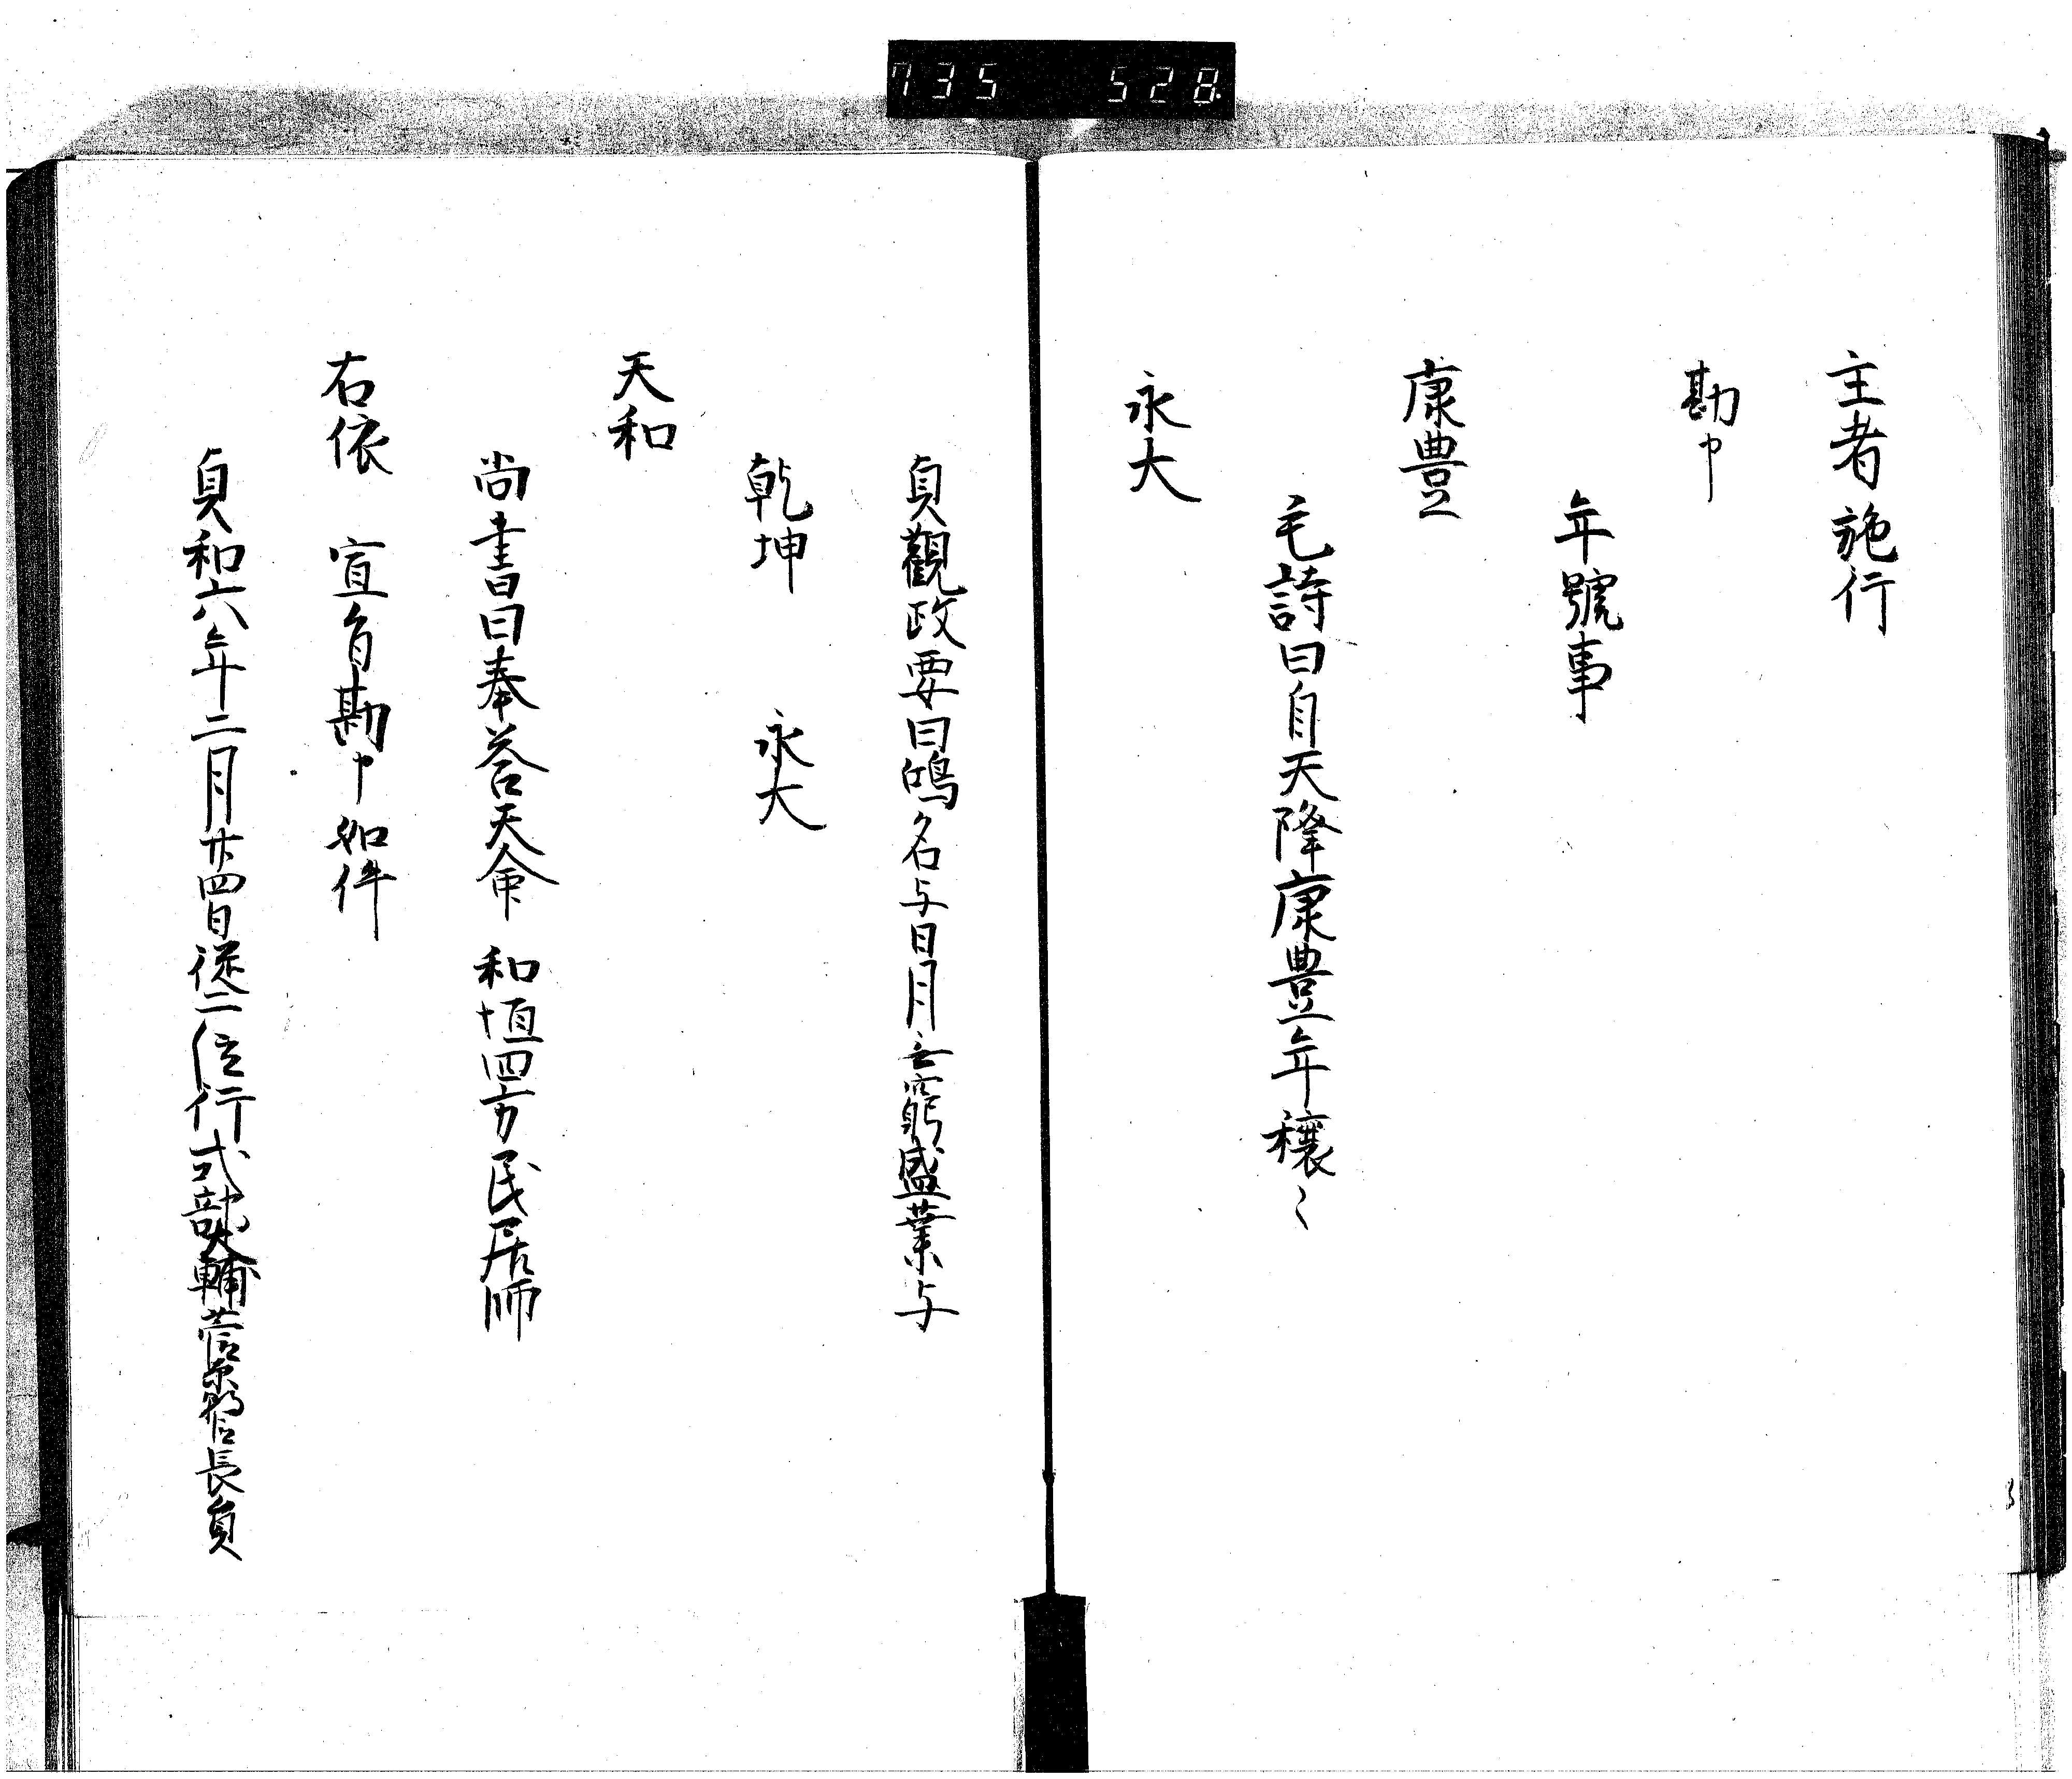 735 528
主者施行
勘申
年號事
康豊
毛詩曰自天降康豊年穰〻
永大
貞觀政要曰鴻名与日月無窮盛業与
乾坤 永大
天和
尚書曰奉荅天命 和恒四方民居師
右依 宣旨勘申如件
貞和六年二月廿四日從二位行式部大輔菅原朝臣長員